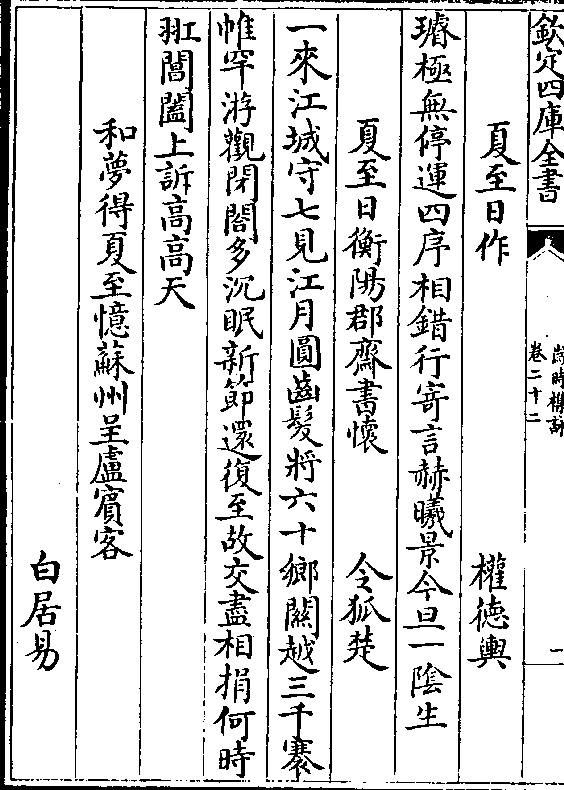 欽定四庫全書
歲時雜詠
卷二十二
一
夏至日作 權德輿
璿極無停運四序相錯行寄言赫曦景今旦一陰生
夏至日衡陽郡齋書懷 令狐楚
一來江城守七見江月圓齒髮將六十鄉關越三千褰
帷罕游觀閉閣多沉眠新節還復至故交盡相捐何時
羾閶闔上訴高高天
和夢得夏至憶蘇州呈盧賓客
白居易